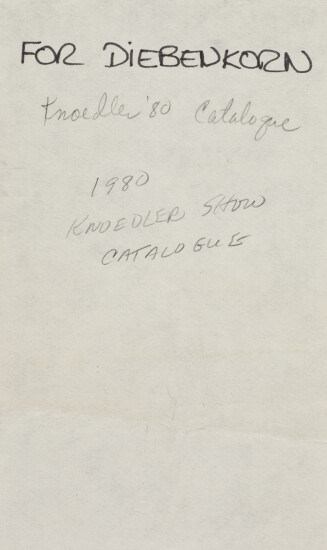 FOR DIEBENKORN
Knoedler '80 Catalogue
1980
KNOEDLER SHOW
CATALOGUE